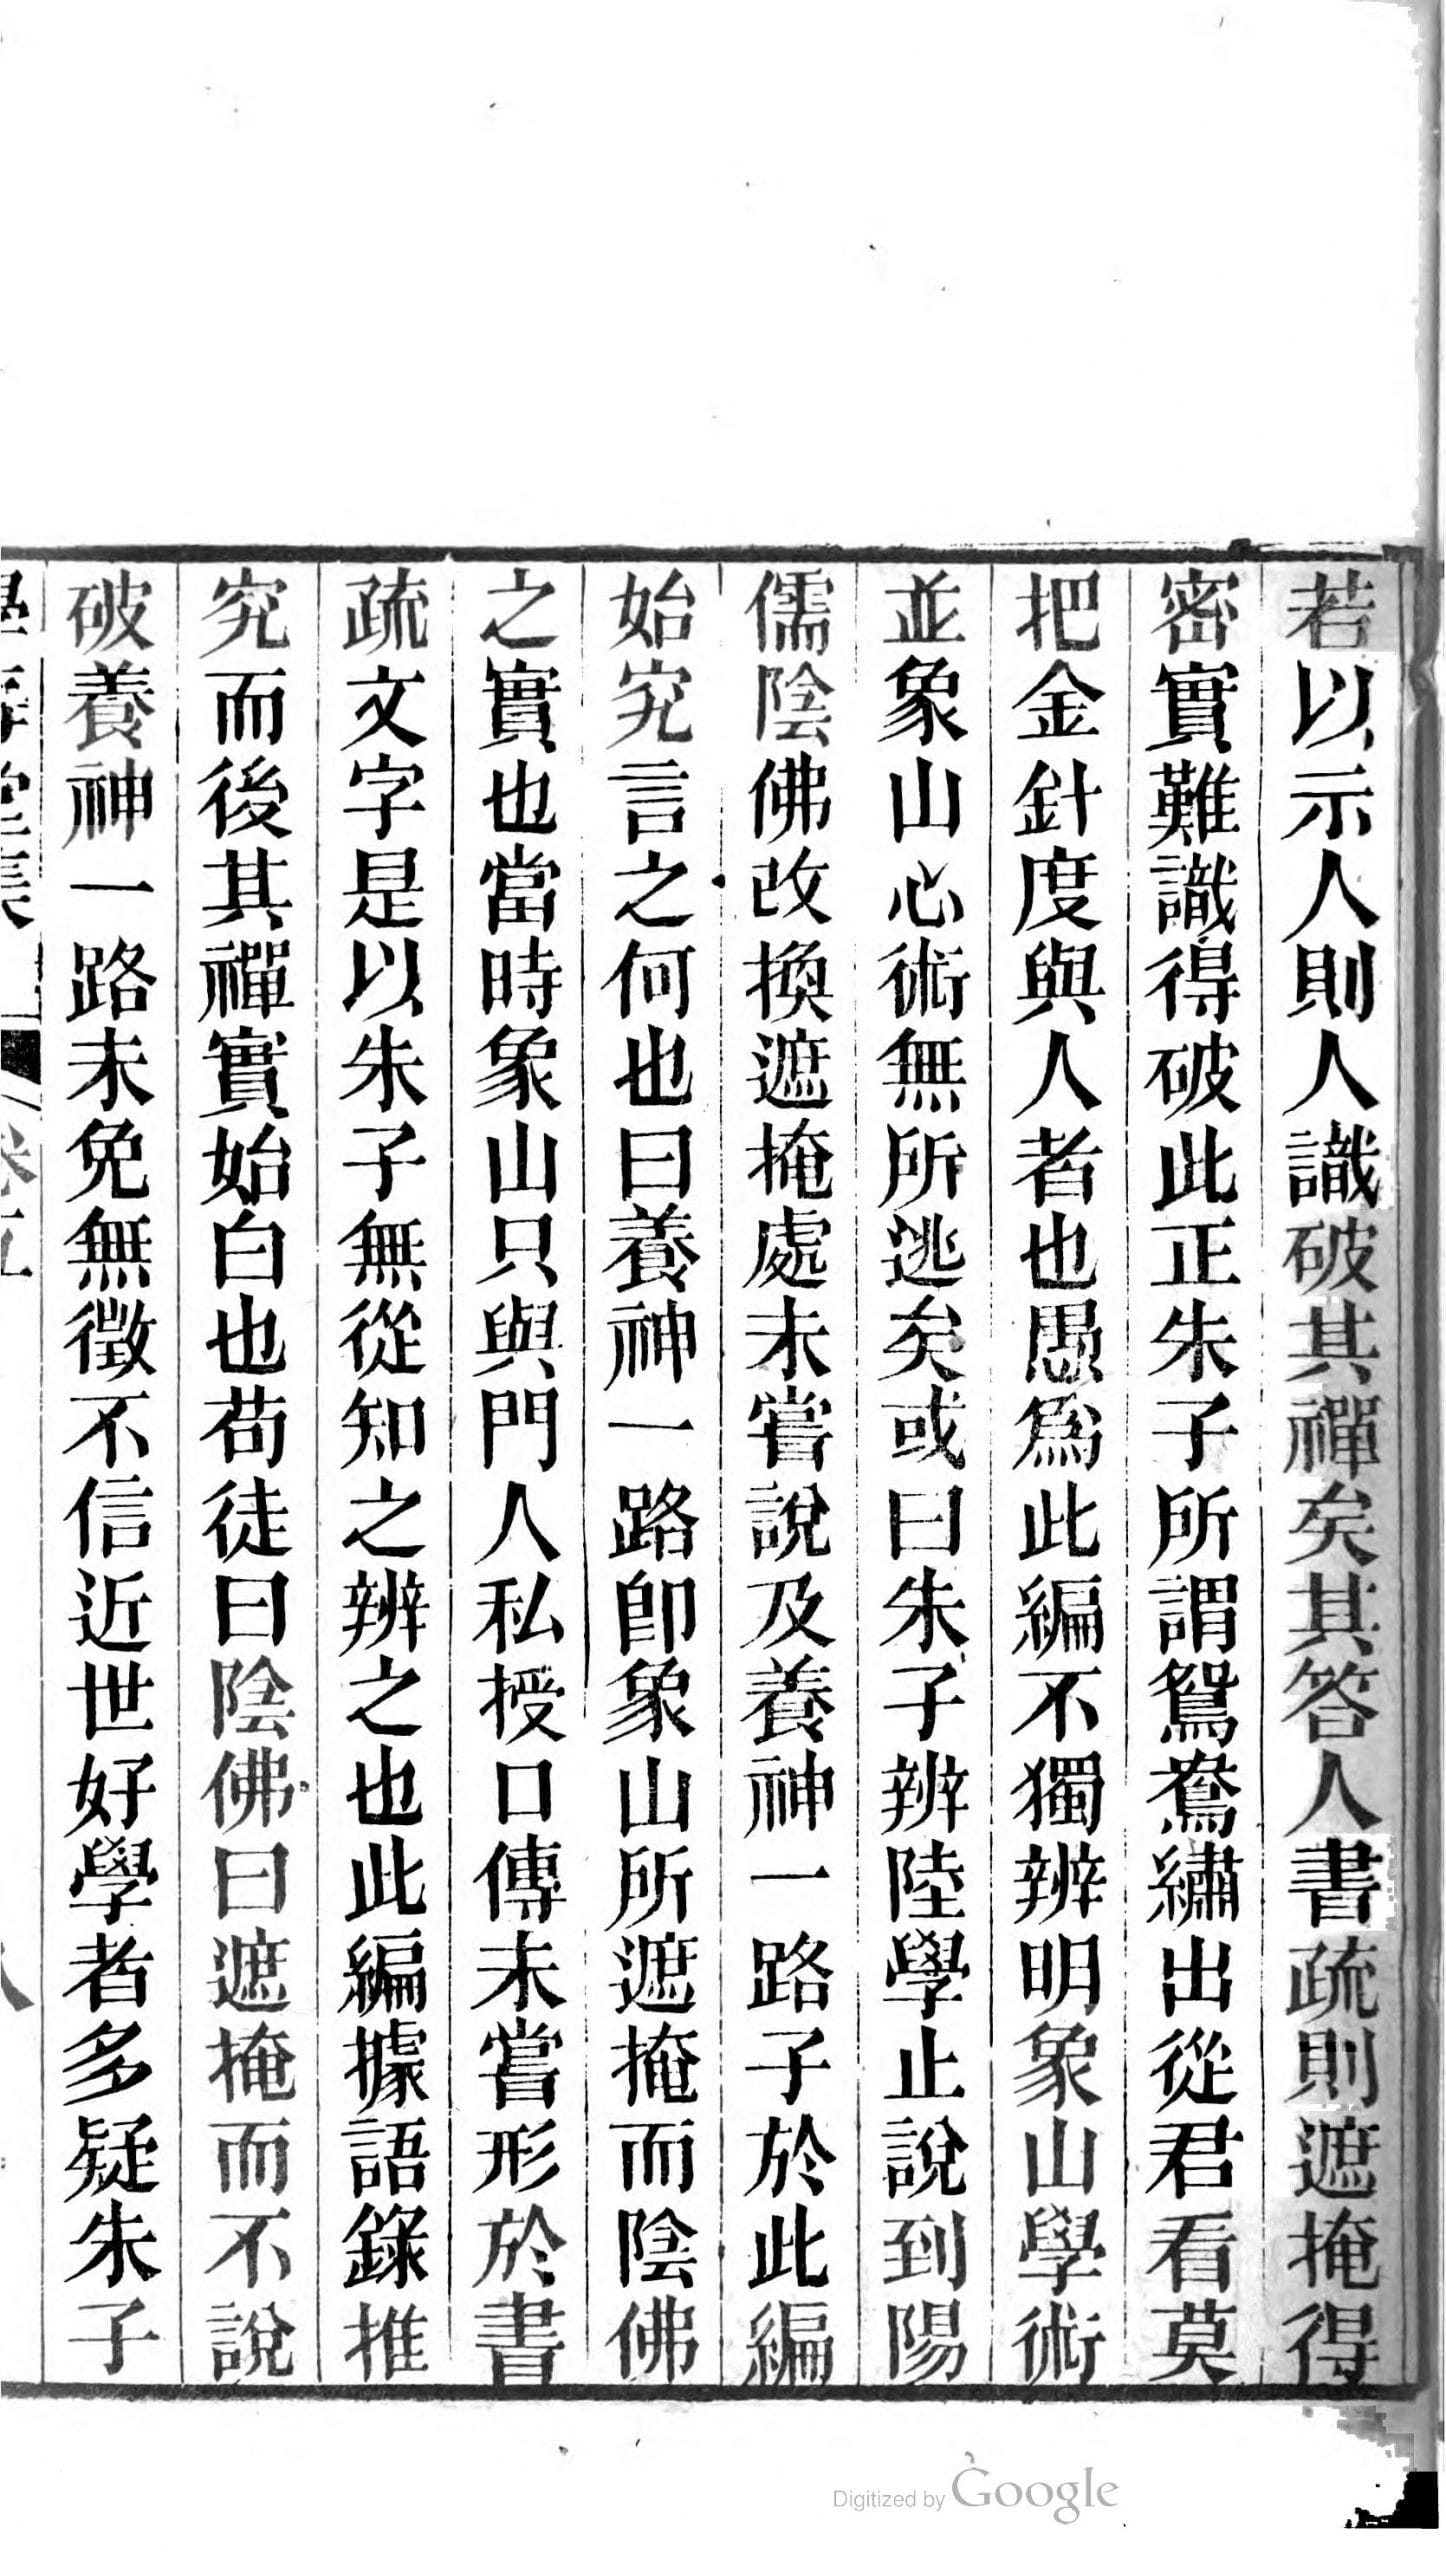 若以示人則人識破其禪矣其答人書疏則遮掩得
密實難識得破此正朱子所謂鴛鴦繡出從君看莫
把金針度與人者也愚爲此編不獨辨明象山學術
並象山心術無所逃矣或曰朱子辨陸學止說到陽
儒陰佛改換遮掩處未嘗說及養神一路子於此編
始究言之何也曰養神一路卽象山所遮掩而陰佛
之實也當時象山只與門人私授口傳未嘗形於書
疏文字是以朱子無從知之辨之也此編據語錄推
究而後其禪實始白也苟徒曰陰佛曰遮掩而不說
破養神一路未免無徵不信近世好學者多疑朱子
Digitized by Google